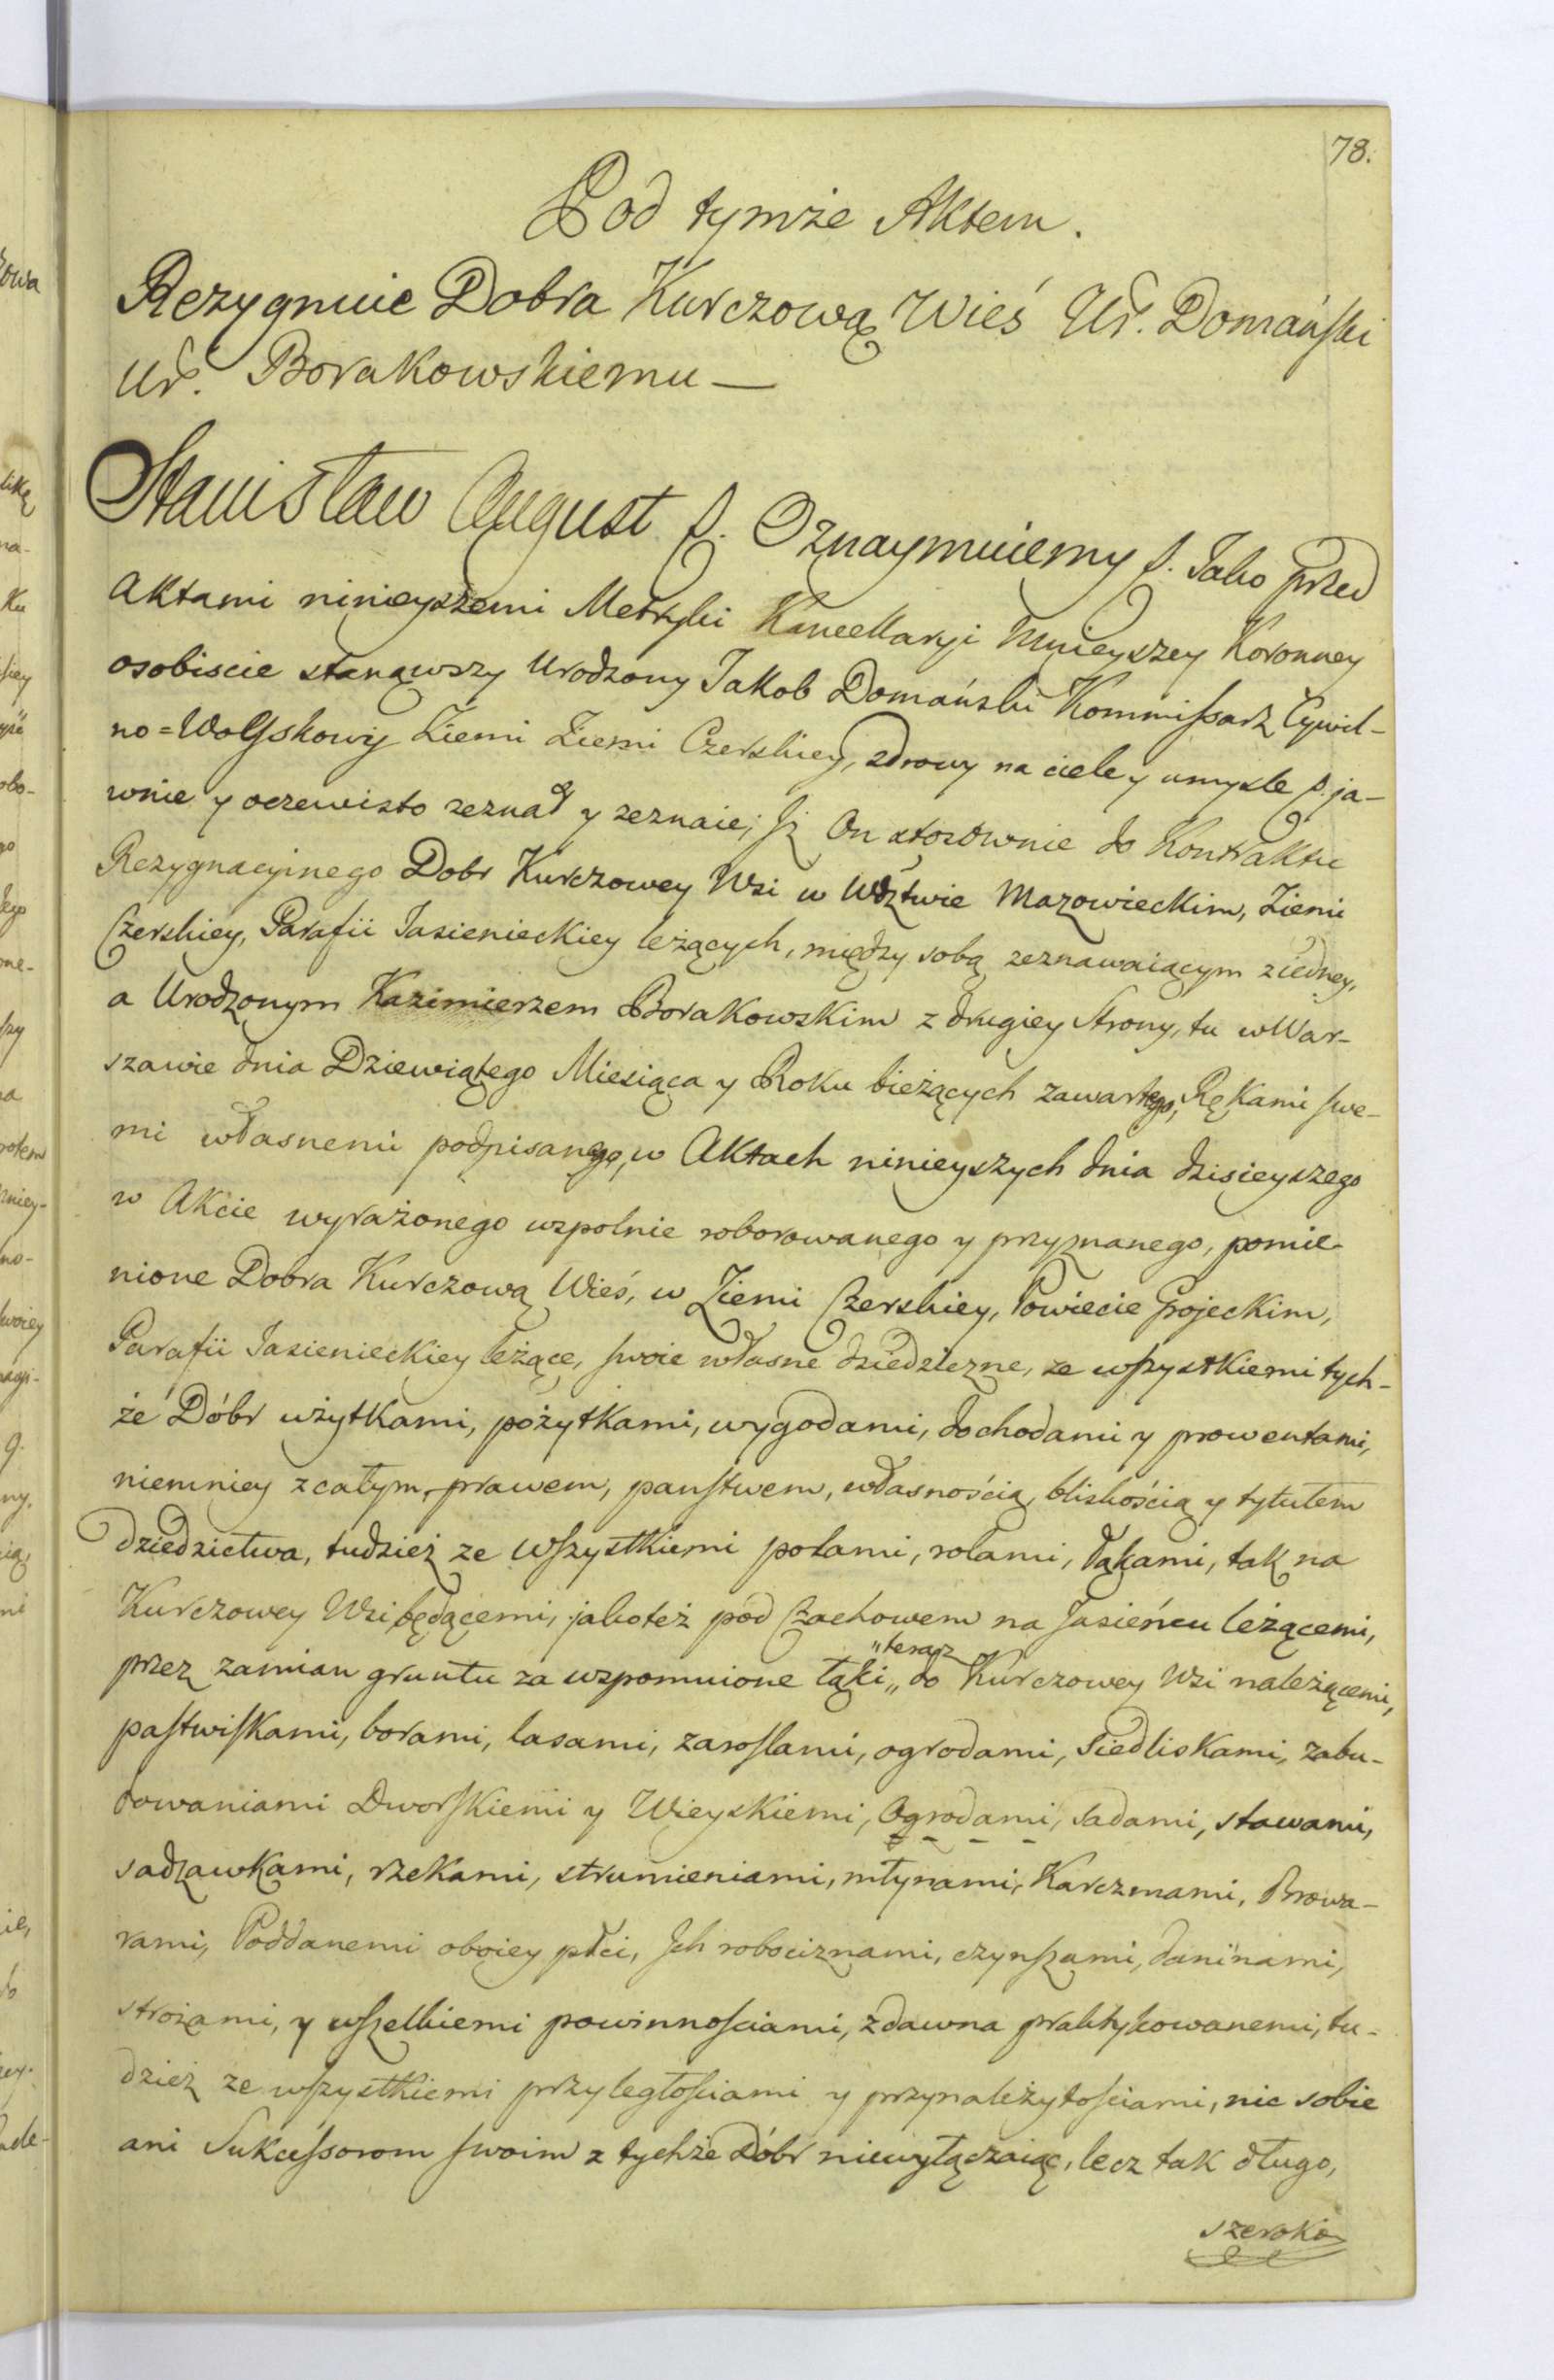 78.
Pod tymże Aktem.
Rezygnuie Dobra Kurczową Wieś Ur. Domański
Ur. Borakowskiemu —
Stanisław August p. Oznaymuiemy p. Jako przed
Aktami ninieyszemi Metryki Kancellaryi Mnieyszey Koronney
osobiscie stanąwszy Urodzony Jakob Domański Kommissarz Cywil-
no=Woyskowy Ziemi Ziemi Czerskiey, zdrowy na ciele y umysle p. ja-
wnie y oczewisto zeznał y zeznaie; Jż On stosownie do Kontraktu
Rezygnacyinego Dobr Kurczowey Wsi w Wdztwie Mazowieckim, Ziemi
Czerskiey, Parafii Jasienieckiey leżących, między sobą zeznawaiącym ziedney,
a Urodzonym Kazimierzem Borakowskim z drugiey Strony, tu w War-
szawie dnia Dziewiątego Miesiąca y Roku bieżących zawartego, Rękami swe-
mi własnemi podpisanego, w Aktach ninieyszych dnia dzisieyszego
w Akcie wyrażonego wspolnie roborowanego y przyznanego, pomie-
nione Dobra Kurczową Wieś, w Ziemi Czerskiey, Powiecie Grojeckim,
Parafii Jasienieckiey leżące, swoie własne dziedziczne, ze wszystkiemi tych-
że Dóbr użytkami, pożytkami, wygodami, dochodami y prowentami,
niemniey z całym prawem, państwem, własnością, bliskością y tytułem
dziedzictwa, tudzież ze wszystkiemi polami, rolami, łąkami, tak na
Kurczowey Wsi będącemi, jakoteż pod Czachowem na Jasieńcu leżącemi,
"teraz
przez zamian gruntu za wspomnione łąki „ do Kurczowey Wsi należącemi,
pastwiskami, borami, lasami, zaroslami, ogrodami, siedliskami, zabu-
dowaniami Dworskiemi y Wieyskiemi, Ogrodami, sadami, stawami,
sadzawkami, rzekami, strumieniami, młynami, Karczmami, Browa-
rami, Poddanemi oboiey płci, Jch robociznami, czynszami, daninami,
strożami, y wszelkiemi powinnościami, zdawna praktykowanemi, tu-
dzież ze wszystkiemi przyległościami y przynależytościami, nic sobie
ani Sukcessorom swoim z tychże Dóbr niewyłączaiąc, lecz tak długo,
szeroko